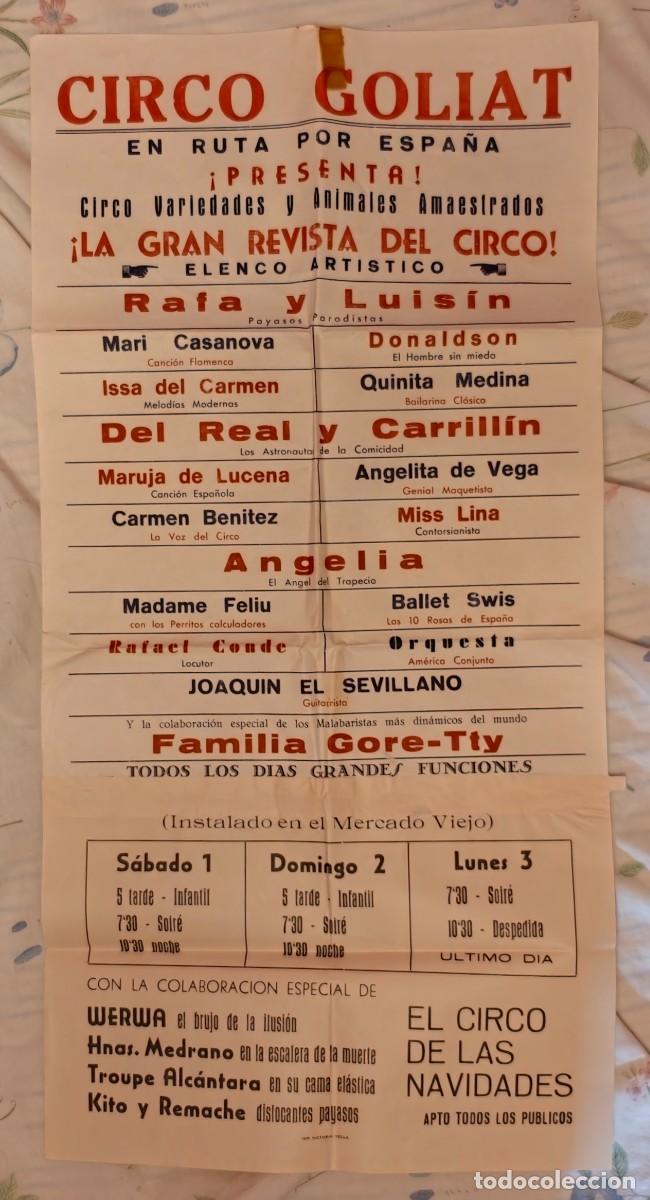 CIRCO GOLIAT
EN RUTA POR ESPAÑA
¡PRESENTA!
Circo Variedades y Animales Amaestrados
¡LA GRAN REVISTA DEL CIRCO!
ELENCO ARTISTICO
Rafa y Luisín
Payasos Parodistas
Mari Casanova
Canción Flamenca
Donaldson
El Hombre sin miedo
Issa del Carmen
Melodías Modernas
Quinita Medina
Bailarina Clásica
Del Real y Carrillín
Los Astronautas de la Comicidad
Maruja de Lucena
Canción Española
Angelita de Vega
Genial Maquetista
Carmen Benitez
La Voz del Circo
Miss Lina
Contorsionista
Angelia
El Angel del Trapecio
Madame Feliu
con los Perritos calculadores
Ballet Swis
Las 10 Rosas de España
Rafael Conde
Locutor
Orquesta
América Conjunto
JOAQUIN EL SEVILLANO
Guitarrista
Y la colaboración especial de los Malabaristas más dinámicos del mundo
Familia Gore-Tty
TODOS LOS DIAS GRANDES FUNCIONES
(Instalado en el Mercado Viejo)
Sábado 1
5 tarde - Infantil
7'30 - Soiré
10'30 noche
Domingo 2
5 tarde - Infantil
7'30 - Soiré
10'30 noche
Lunes 3
7'30 - Soiré
10'30 - Despedida
ULTIMO DIA
CON LA COLABORACION ESPECIAL DE
WERWA el brujo de la ilusión
Hnas. Medrano en la escalera de la muerte
Troupe Alcántara en su cama elástica
Kito y Remache dislocantes payasos
EL CIRCO
DE LAS
NAVIDADES
APTO TODOS LOS PUBLICOS
todocoleccion